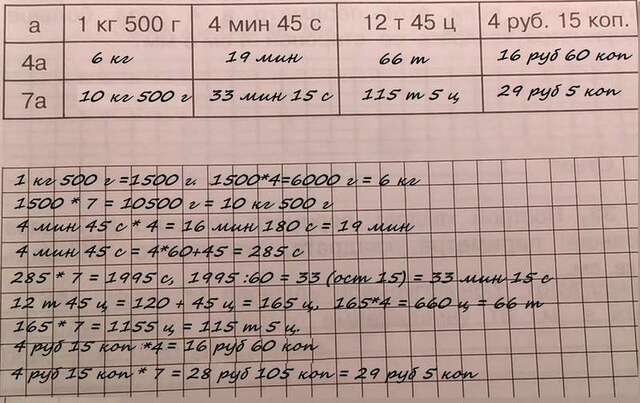 а 1 кг 500 г 4 мин 45 с 12 т 45 ц 4 руб. 15 коп.
4а 6 кг 19 мин 66 т 16 руб 60 коп
7а 10 кг 500 г 33 мин 15 с 115 т 5 ц 29 руб 5 коп
1 кг 500 г =1500 г. 1500*4=6000 г = 6 кг
1500 * 7 = 10500 г = 10 кг 500 г
4 мин 45 с * 4 = 16 мин 180 с = 19 мин
4 мин 45 с = 4*60+45 = 285 с
285 * 7 = 1995 с, 1995 :60 = 33 (ост 15) = 33 мин 15 с
12 т 45 ц = 120 + 45 ц = 165 ц, 165*4 = 660 ц = 66 т
165 * 7 = 1155 ц = 115 т 5 ц.
4 руб 15 коп *4 = 16 руб 60 коп
4 руб 15 коп * 7 = 28 руб 105 коп = 29 руб 5 коп